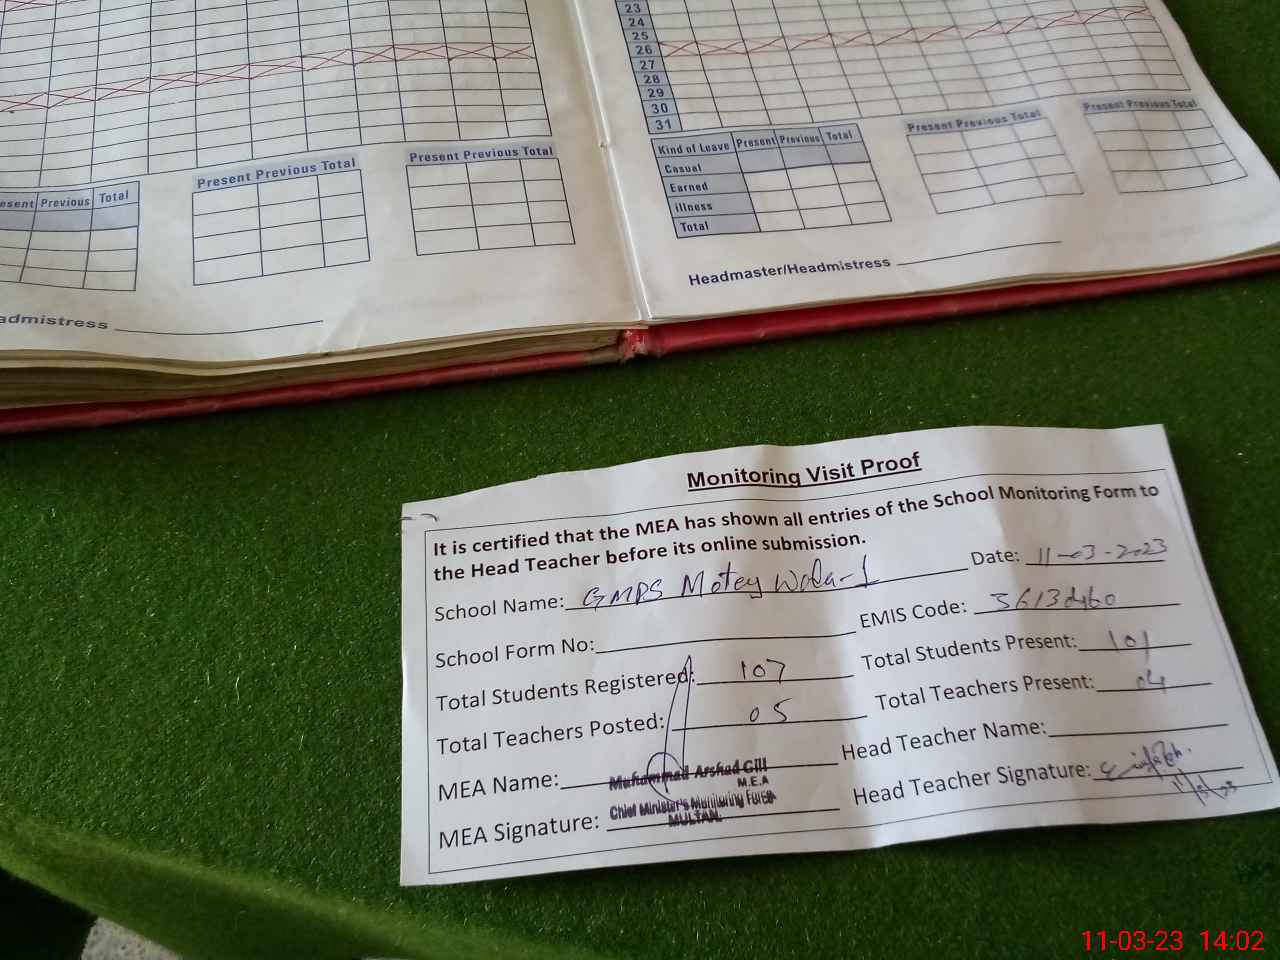 23
24
25
26
27
28
29
30
31
Kind of Leave Present Previous Total
Casual
Earned
illness
Total
Present Previous Total
Present Previous Total
Headmaster/Headmistress
Previous Total
Present Previous Total
Present Previous Total
Monitoring Visit Proof
It is certified that the MEA has shown all entries of the School Monitoring Form to
the Head Teacher before its online submission.
School Name: GMPS Motey Wala-1 Date: 11-03-2023
School Form No: EMIS Code:
Total Students Registered: 107 Total Students Present: 101
Total Teachers Posted: 05 Total Teachers Present: 04
MEA Name: Muhammad Arshad Gill Head Teacher Name:
M.E.A
Chief Minister's Monitoring Force
MULTAN.
MEA Signature: Head Teacher Signature:
11-03-23 14:02